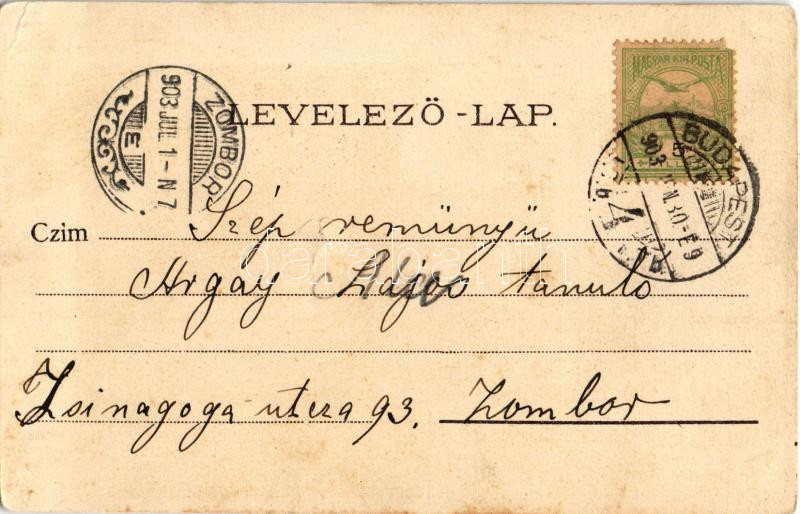 MAGYAR KIR. POSTA
LEVELEZŐ-LAP.
ZOMBOR
903 JUL 1-N 7
E
BUDAPEST
903 JUN. 30-E 9
Czim Szép reményü
Argay Lajos tanuló
Zsinagoga-utcza 93. Zombor
darabanth